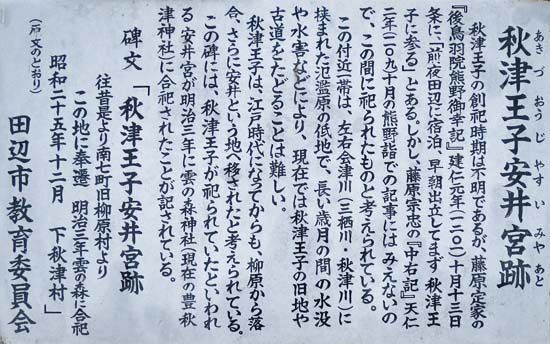 秋津王子安井宮跡
あきづおうじやすいみやあと
秋津王子の創祀時期は不明であるが、藤原定家の
『後鳥羽院熊野御幸記』建仁元年(一二〇一)十月十三日
条に、「前夜田辺に宿泊、早朝出立してまず 秋津王
子に参る」とある。しかし、藤原宗忠の『中右記』天仁
二年(一一〇九)十月の熊野詣での記事にはみえないの
で、この間に祀られたものと考えられている。
この付近一帯は、左右会津川(三栖川・秋津川)に
挟まれた氾濫原の低地で、長い歳月の間の水没
や水害などにより、現在では秋津王子の旧地や
古道をたどることは難しい。
秋津王子は、江戸時代になってからも、柳原から落
合、さらに安井という地へ移されたと考えられている。
この碑には、秋津王子が祀られていたといわれ
る安井宮が明治三年に雲の森神社(現在の豊秋
津神社)に合祀されたことが記されている。
碑文「秋津王子安井宮跡
往昔是より南七町旧柳原村より
この地に奉遷 明治三年雲の森に合祀
昭和二十五年十二月 下秋津村」
(石文のとおり)
田辺市教育委員会